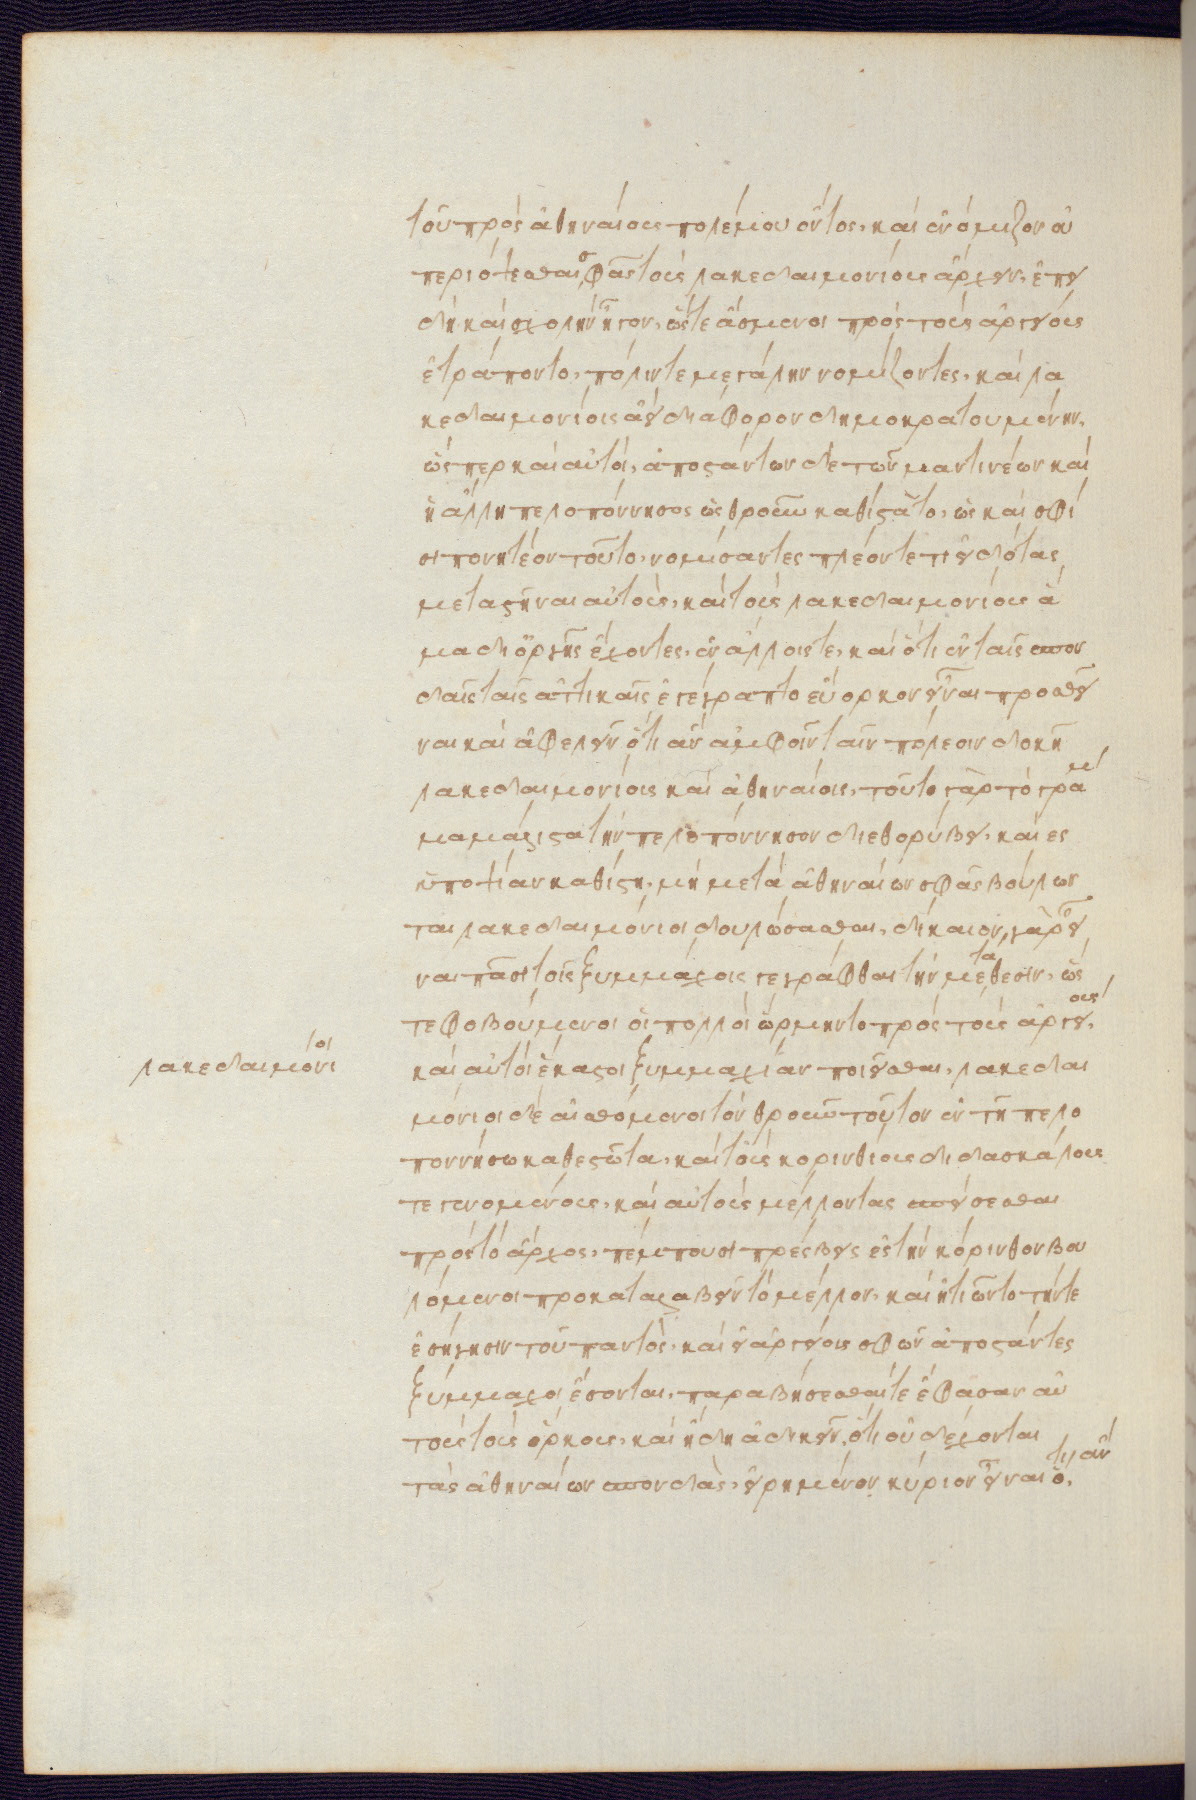 τοῦ πρὸς ἀθηναίους πολέμου ὄντος, καὶ ἐνόμιζον οὐ
περιόψεσθαι σφᾶς τοὺς λακεδαιμονίους ἄρχειν, ἐπει
δὴ καὶ σχολὴν ἦγον, ὥστε ἄσμενοι πρὸς τοὺς ἀργείους
ἐτράποντο, πόλιν τε μεγάλην νομίζοντες, καὶ λα
κεδαιμονίοις ἀεὶ διάφορον δημοκρατουμένην,
ὥσπερ καὶ αὐτοί, ἀποστάντων δὲ τῶν μαντινέων καὶ
ἡ ἄλλη πελοπόννησος ὡς θροῦν καθίστατο, ὡς καὶ σφί
σι ποιητέον τοῦτο, νομίσαντες πλέον τέ τι εἰδότας
μεταστῆναι αὐτοὺς, καὶ τοὺς λακεδαιμονίους ἅ
μα δι ὀργῆς ἔχοντες, ἐν ἄλλοις τε, καὶ ὅτι ἐν ταῖς σπον
δαῖς ταῖς ἀττικαῖς ἐγέγραπτο εὔορκον εἶναι προσθεῖ
ναι καὶ ἀφελεῖν ὅτι ἂν ἀμφοῖν ταῖν πόλεοιν δοκῇ
λακεδαιμονίοις καὶ ἀθηναίοις, τοῦτο γὰρ τὸ γράμ
μα μάλιστα τὴν πελοπόννησον διεθορύβει, καὶ ες
ὑποψίαν καθίστη, μὴ μετὰ ἀθηναίων σφᾶς βούλων
ται λακεδαιμόνιοι δουλώσασθαι, δίκαιον γὰρ εἶ
ναι πᾶσι τοῖς ξυμμάχοις γεγράφθαι τὴν μετάθεσιν, ὥς
τε φοβούμενοι οἱ πολλοὶ ὥρμηντο πρὸς τοὺς ἀργείους,
καὶ αὐτοὶ ἕκαστοι ξυμμαχίαν ποιεῖσθαι, λακεδαι
μόνιοι δὲ αἰσθόμενοι τὸν θροῦν τοῦτον ἐν τῇ πελο
ποννήσω καθεστῶτα, καὶ τοὺς κορινθίους διδασκάλους
τε γενομένους, καὶ αὐτοὺς μέλλοντας σπείσεσθαι
πρὸς τὸ ἄργος, πέμπουσι πρέσβεις ἐς τὴν κόρινθον βου
λόμενοι προκαταλαβεῖν τὸ μέλλον, καὶ ἠτιῶντο τήν τε
ἐσήγησιν τοῦ παντὸς, καὶ εἰ ἀργείοις σφῶν ἀποστάντες
ξύμμαχοι ἔσονται, παραβήσεσθαί τε ἔφασαν αὐ
τοὺς τοὺς ὅρκους, καὶ ἤδη ἀδικεῖν, ὅτι οὐ δέχονται
τὰς ἀθηναίων σπονδὰς, εἰρημένον κύριον εἶναι ὅ,τι ἂν
λακεδαιμόνιοι